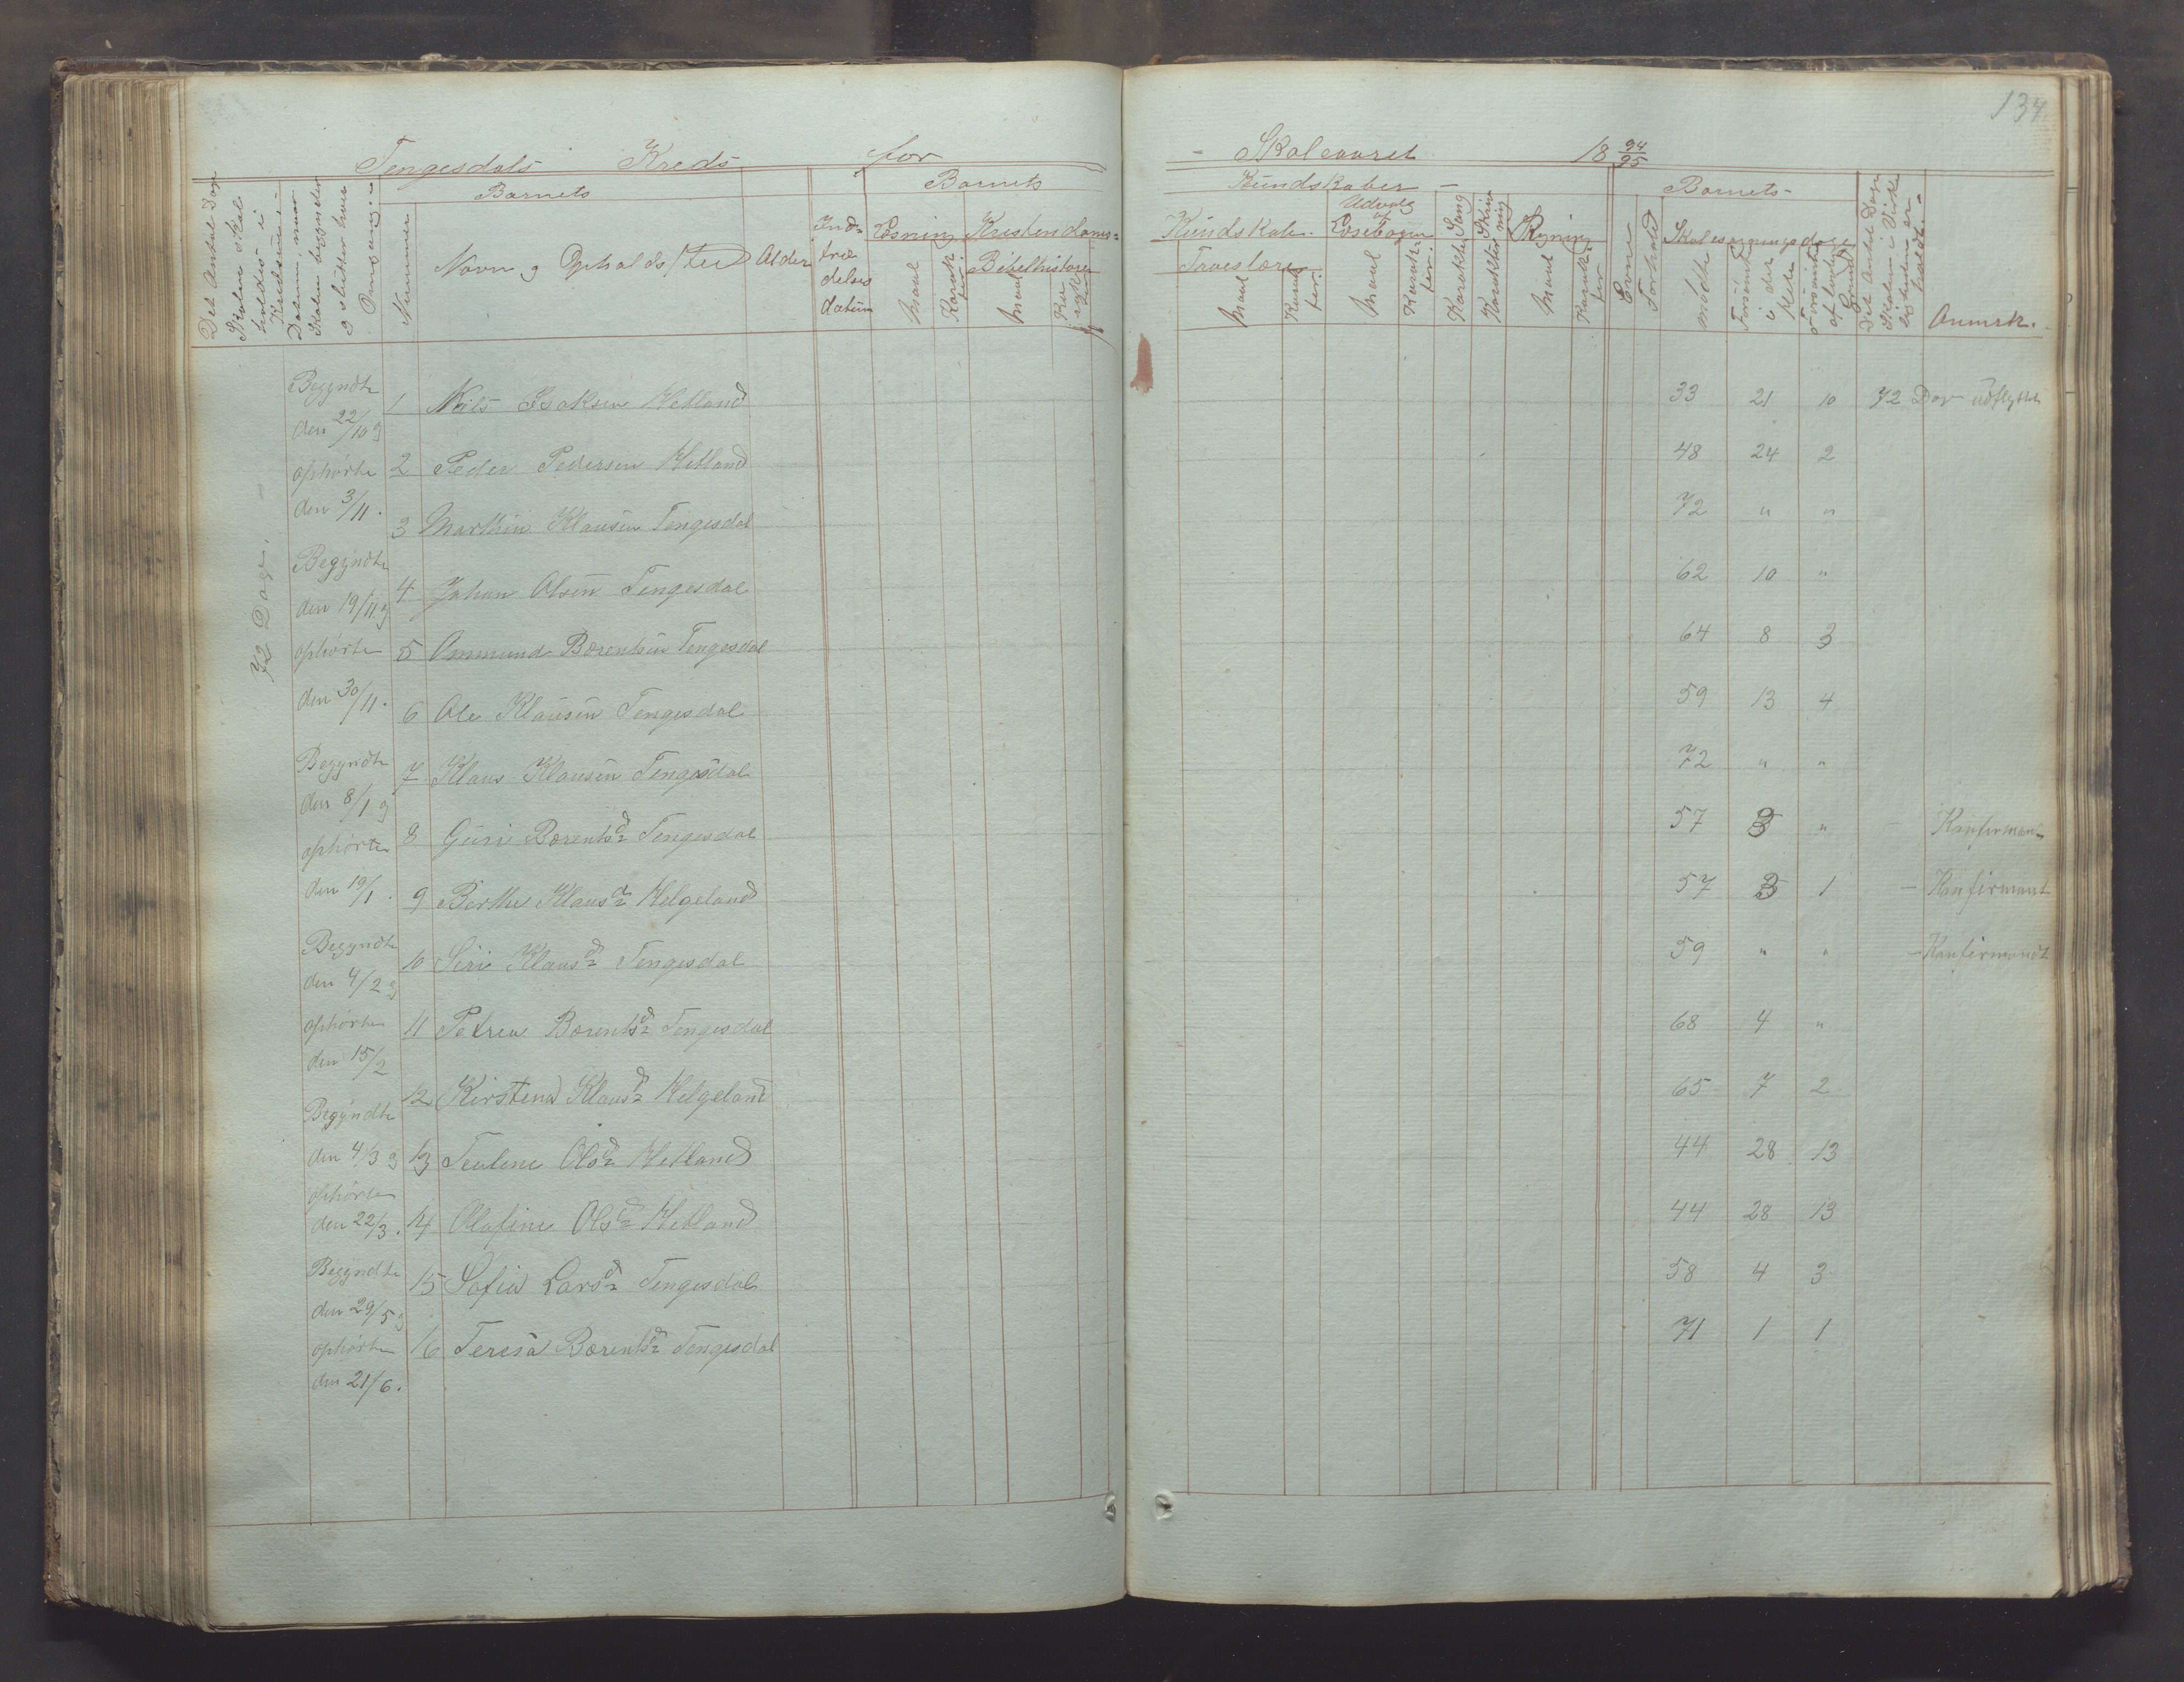 134
Tengesdals Kreds for Skoleaaret 18 94/95
Det Antal Dage Skolen skal holdes i Kredsen
Datum, naar Skolen begynder og slutter hver Omgang
Barnets
Nummer
Navn og Opholdssted
Alder
Indtrædelsesdatum
Barnets Kundskaber
Læsning
Maal
Karakter
Kristendoms-Kundskab
Bibelhistorie
Maal
Karakter
Troeslære
Maal
Karakter
Udvalg af Læsebogen
Maal
Karakter
Sang
Karakter
Skrivning
Karakter
Regning
Maal
Karakter
Barnets
Evne
Forhold
Skolesøgningsdage
mødte
Forsømt i det Hele
Forsømt af lovlig Grund
Det Antal Dage Skolen i Virkeligheden er holdt
Anmrk.
72 Dage.
Begyndte
den 22/10 og
ophørte
den 3/11.
Begyndte
den 19/11 og
ophørte
den 30/11.
Begyndte
den 8/1 og
ophørte
den 19/1.
Begyndte
den 4/2 og
ophørte
den 15/2
Begyndte
den 4/3 og
ophørte
den 22/3.
Begyndte
den 29/5 og
ophørte
den 21/6.
1 Nils Isaksen Hetland 33 21 10 72 Dage udflyttet
2 Peder Pedersen Hetland 48 24 2
3 Marthin Klausen Tengesdal 72 " "
4 Johan Olsen Tengesdal 62 10 "
5 Ommund Bærentsen Tengesdal 64 8 3
6 Ole Klausen Tengesdal 59 13 4
7 Klaus Klausen Tengesdal 72 " "
8 Guri Bærentsd. Tengesdal 57 3 " - Konfirmant
9 Berthe Klausd. Helgeland 57 3 1 - Konfirmant
10 Siri Klausd. Tengesdal 59 " " - Konfirmandt
11 Petrea Bærentsd. Tengesdal 68 4 "
12 Kirstena Klausd. Helgeland 65 7 2
13 Teoline Olsd. Hetland 44 28 13
14 Olafine Olsd. Hetland 44 28 13
15 Sofia Larsd. Tengesdal 58 4 3
16 Teresa Bærentsd. Tengesdal 71 1 1